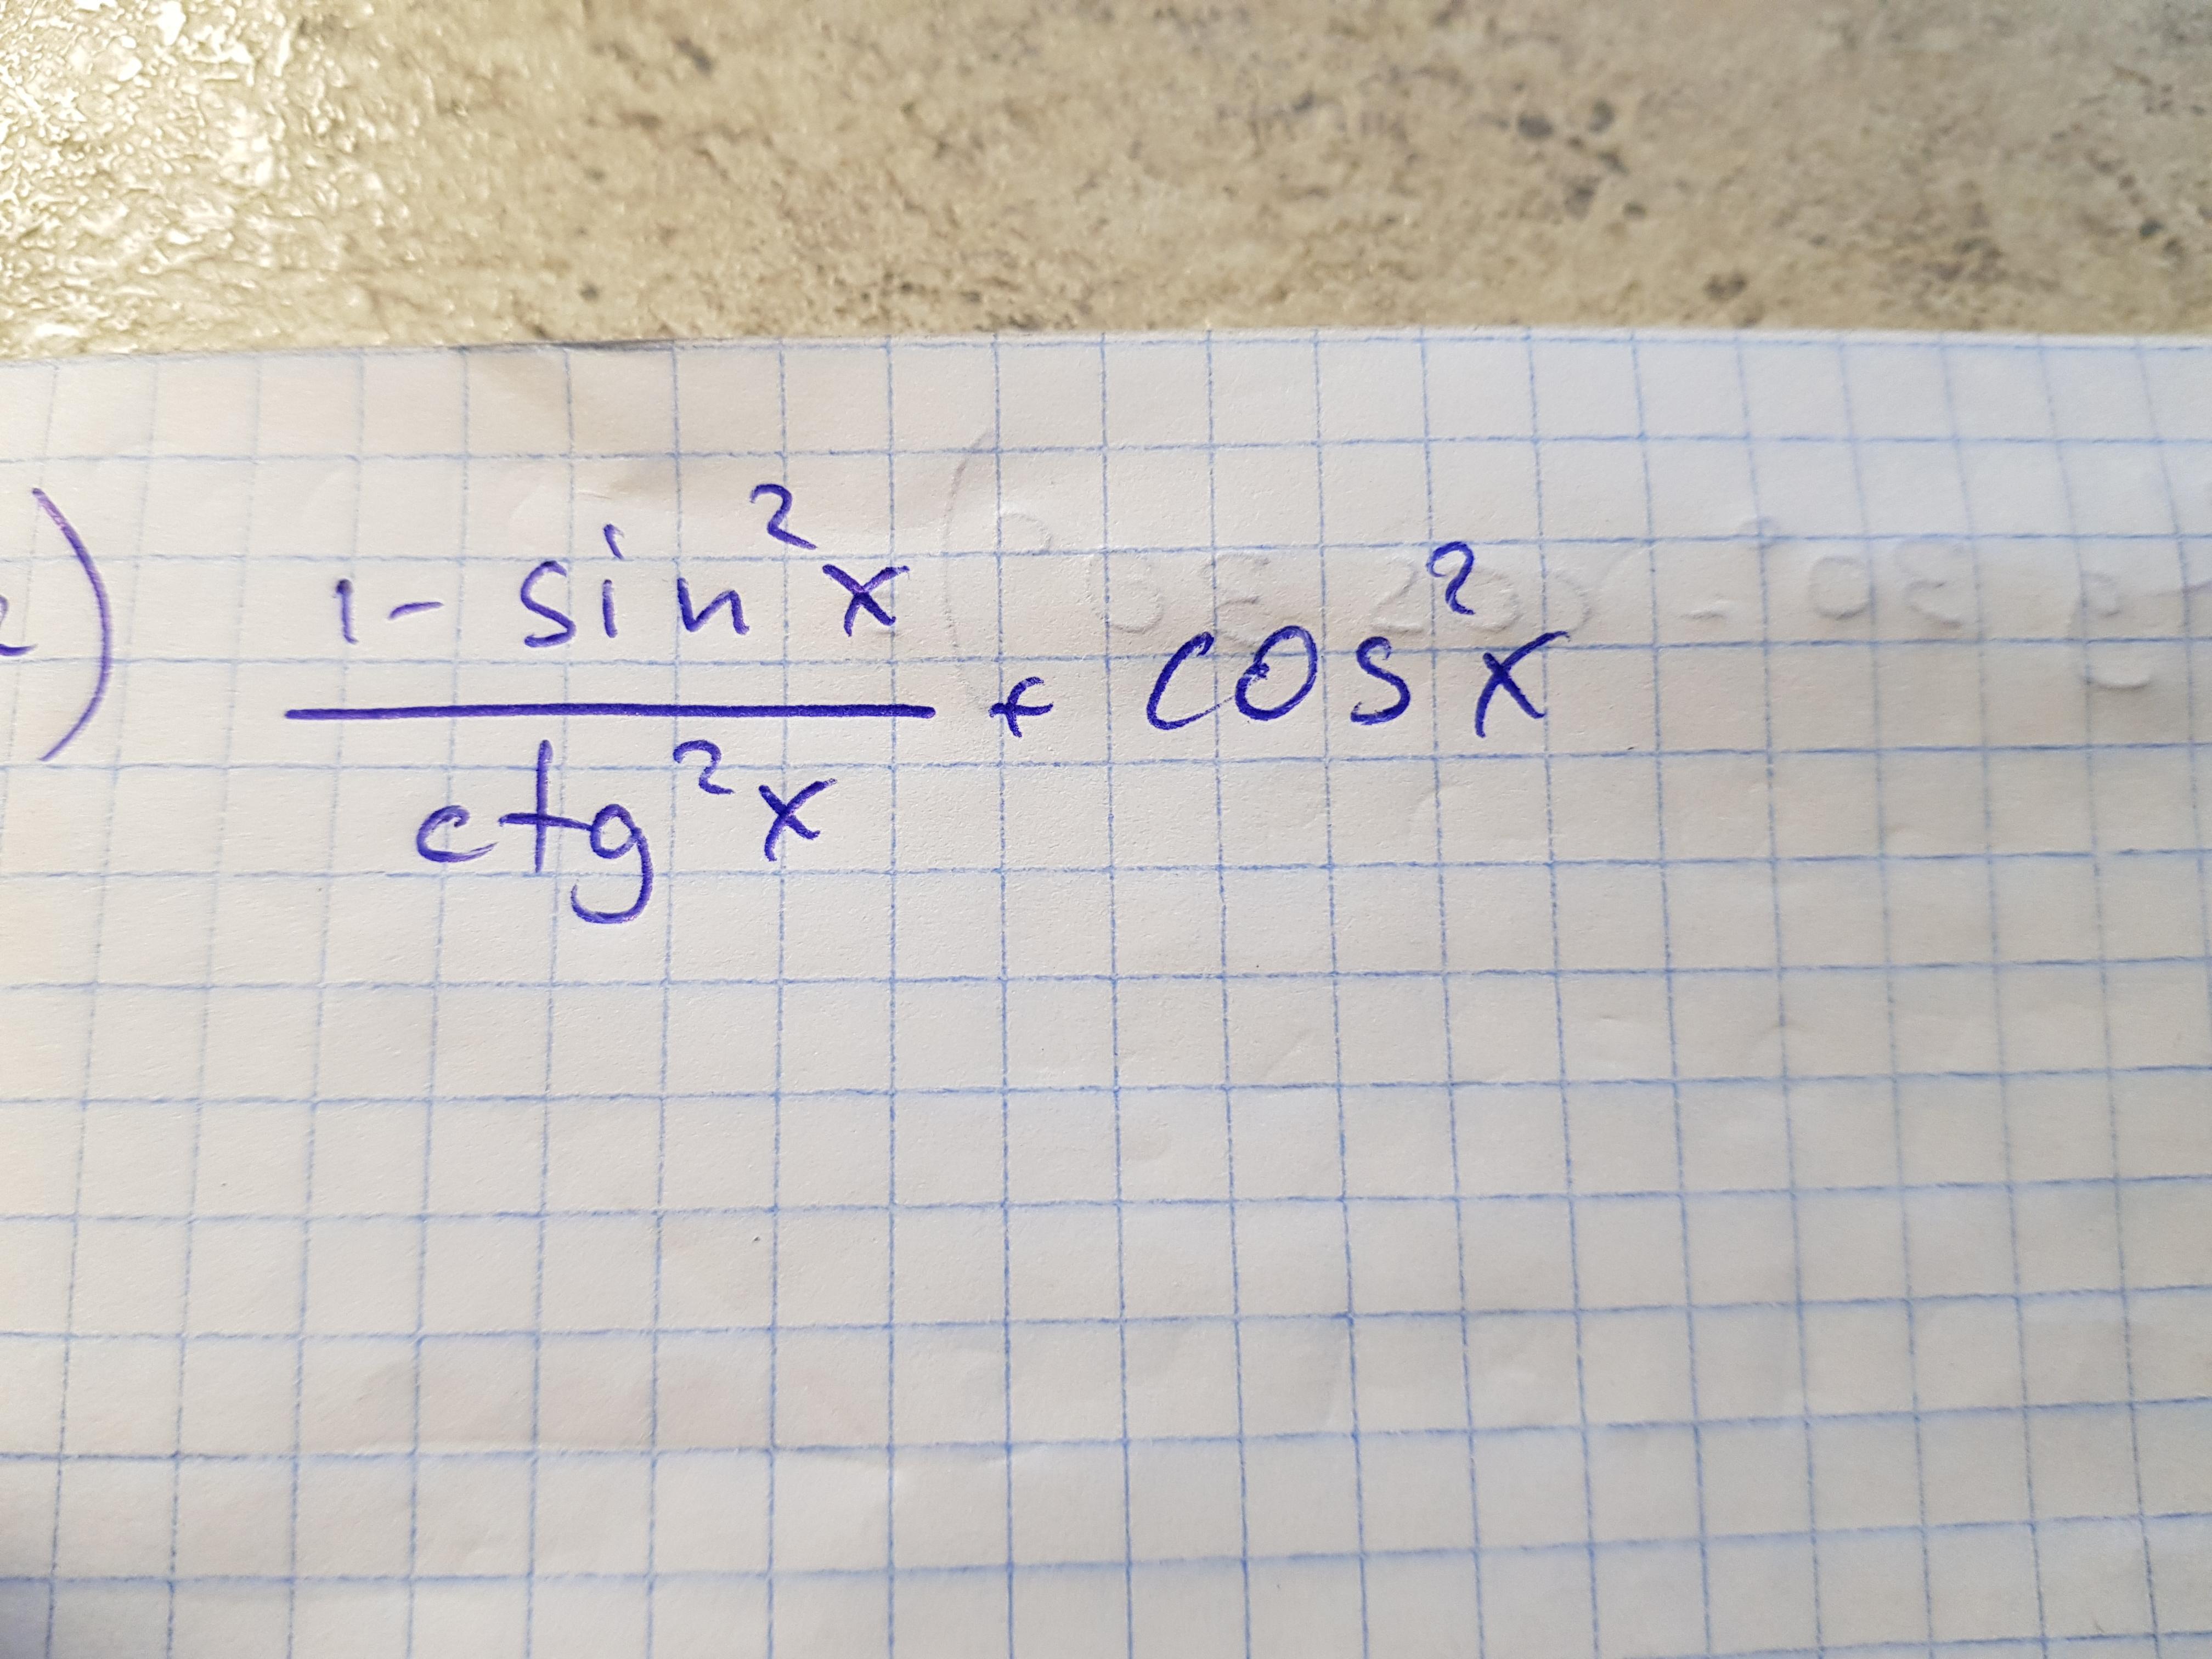 ) 1 - sin²x / ctg²x + cos²x